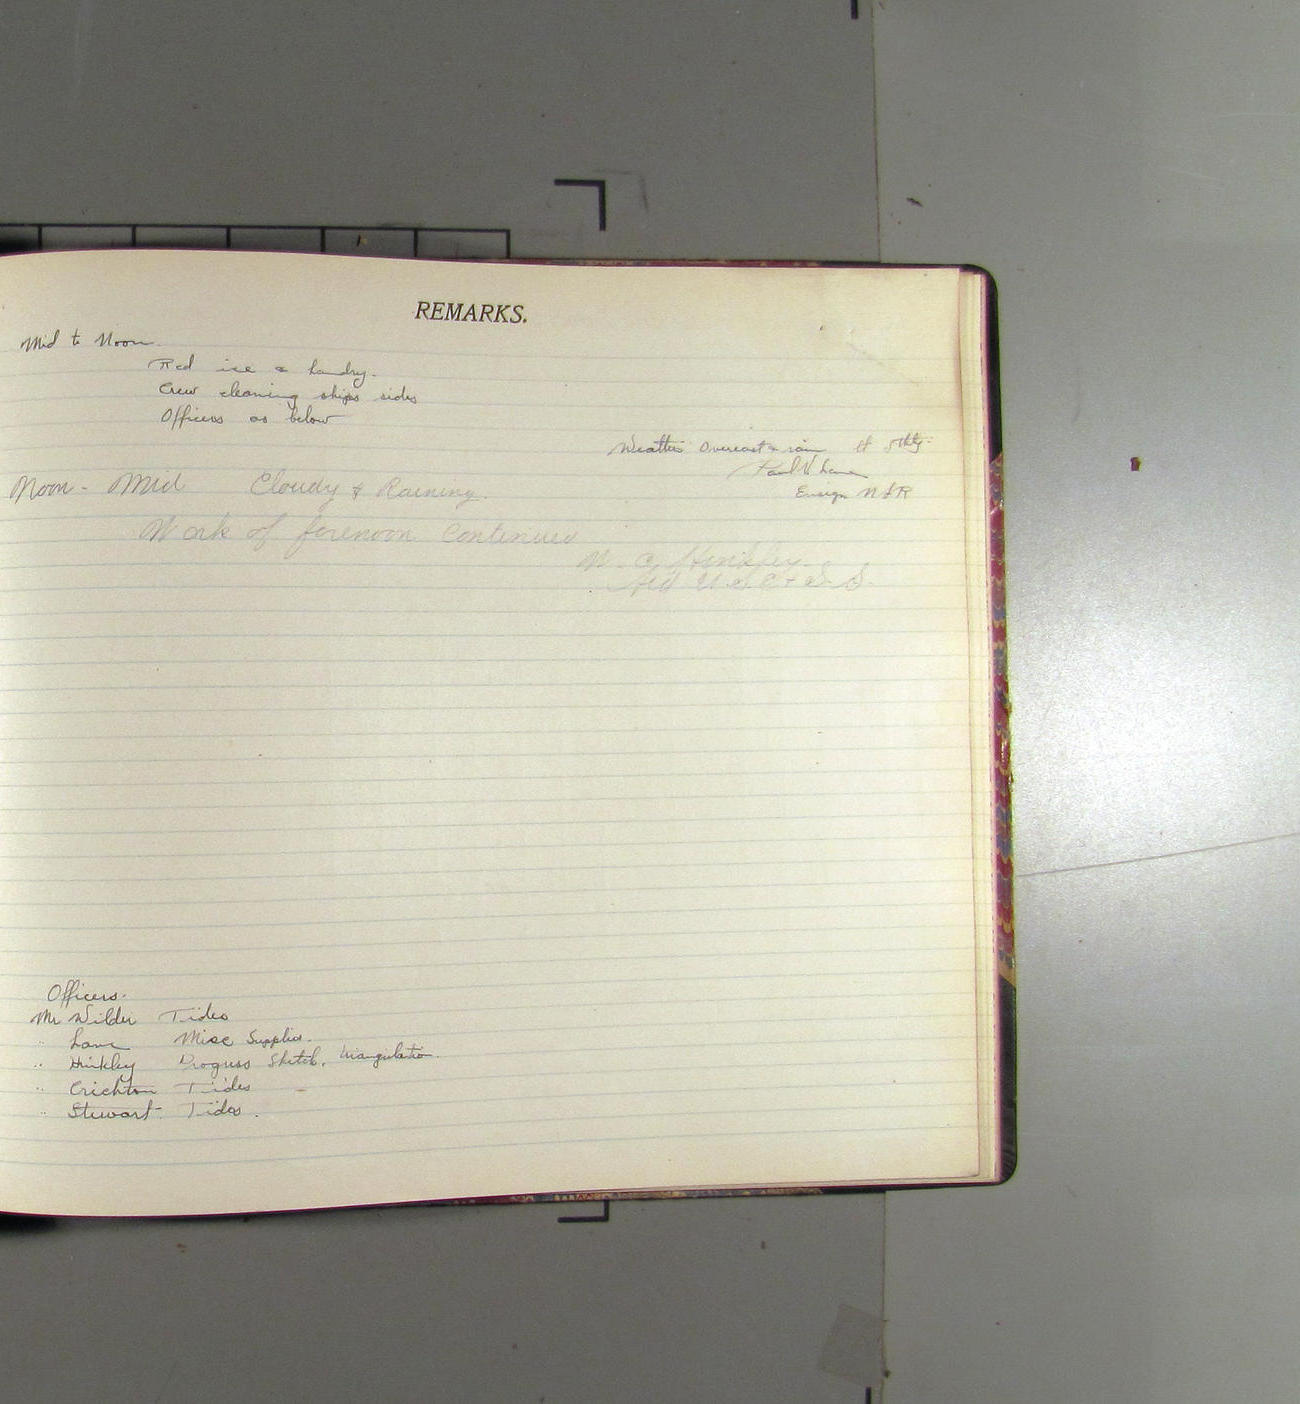 REMARKS.
Mid to Noon.
Rcd ice & laundry.
Crew cleaning ships sides
Officers as below
Weather Overcast & rain lt S'thly.
Paul V. Lane
Ensign NRF
Noon - Mid Cloudy & Raining.
Work of forenoon continued
W. C. Hinkley
Aid U.S.C. & G.S.
Officers.
Mr Wilder Tides
" Lane Misc Supplies.
" Hinkley Progress Sketch. triangulation.
" Crichton Tides
" Stewart Tides.